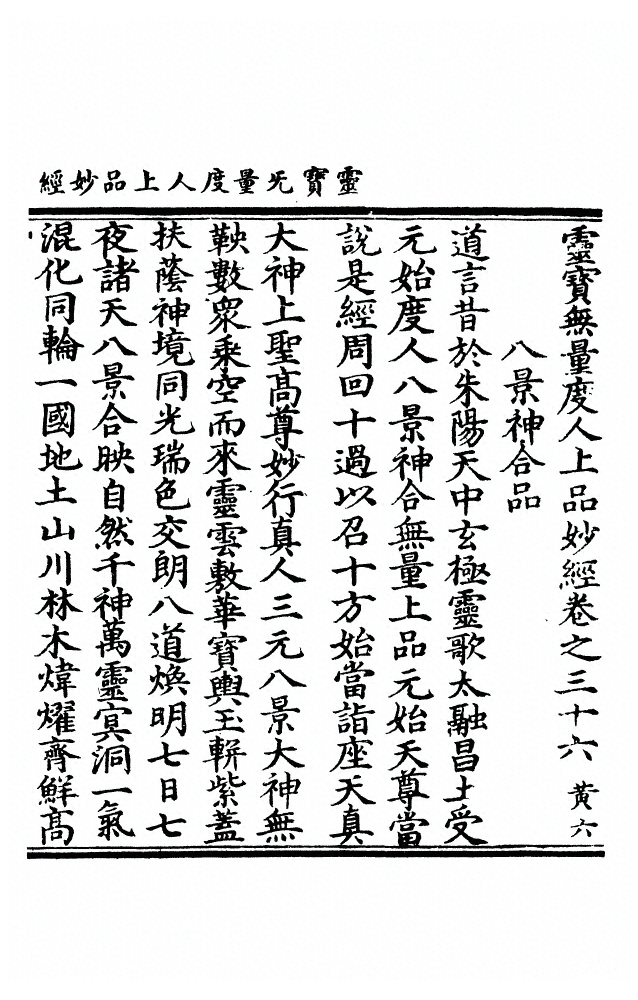 靈寶旡量度人上品妙經
靈寶無量度人上品妙經卷之三十六 黃六
八景神合品
道言昔於朱陽天中玄極靈歌太融昌土受
元始度人八景神合無量上品元始天尊當
說是經周回十過以召十方始當詣座天真
大神上聖高尊妙行真人三元八景大神無
鞅數眾乘空而來靈雲敷華寶輿玉軿紫蓋
扶蔭神境同光瑞色交朗八道煥明七日七
夜諸天八景合映自然千神萬靈㝠洞一氣
混化同輪一國地土山川林木煒燿齊鮮高